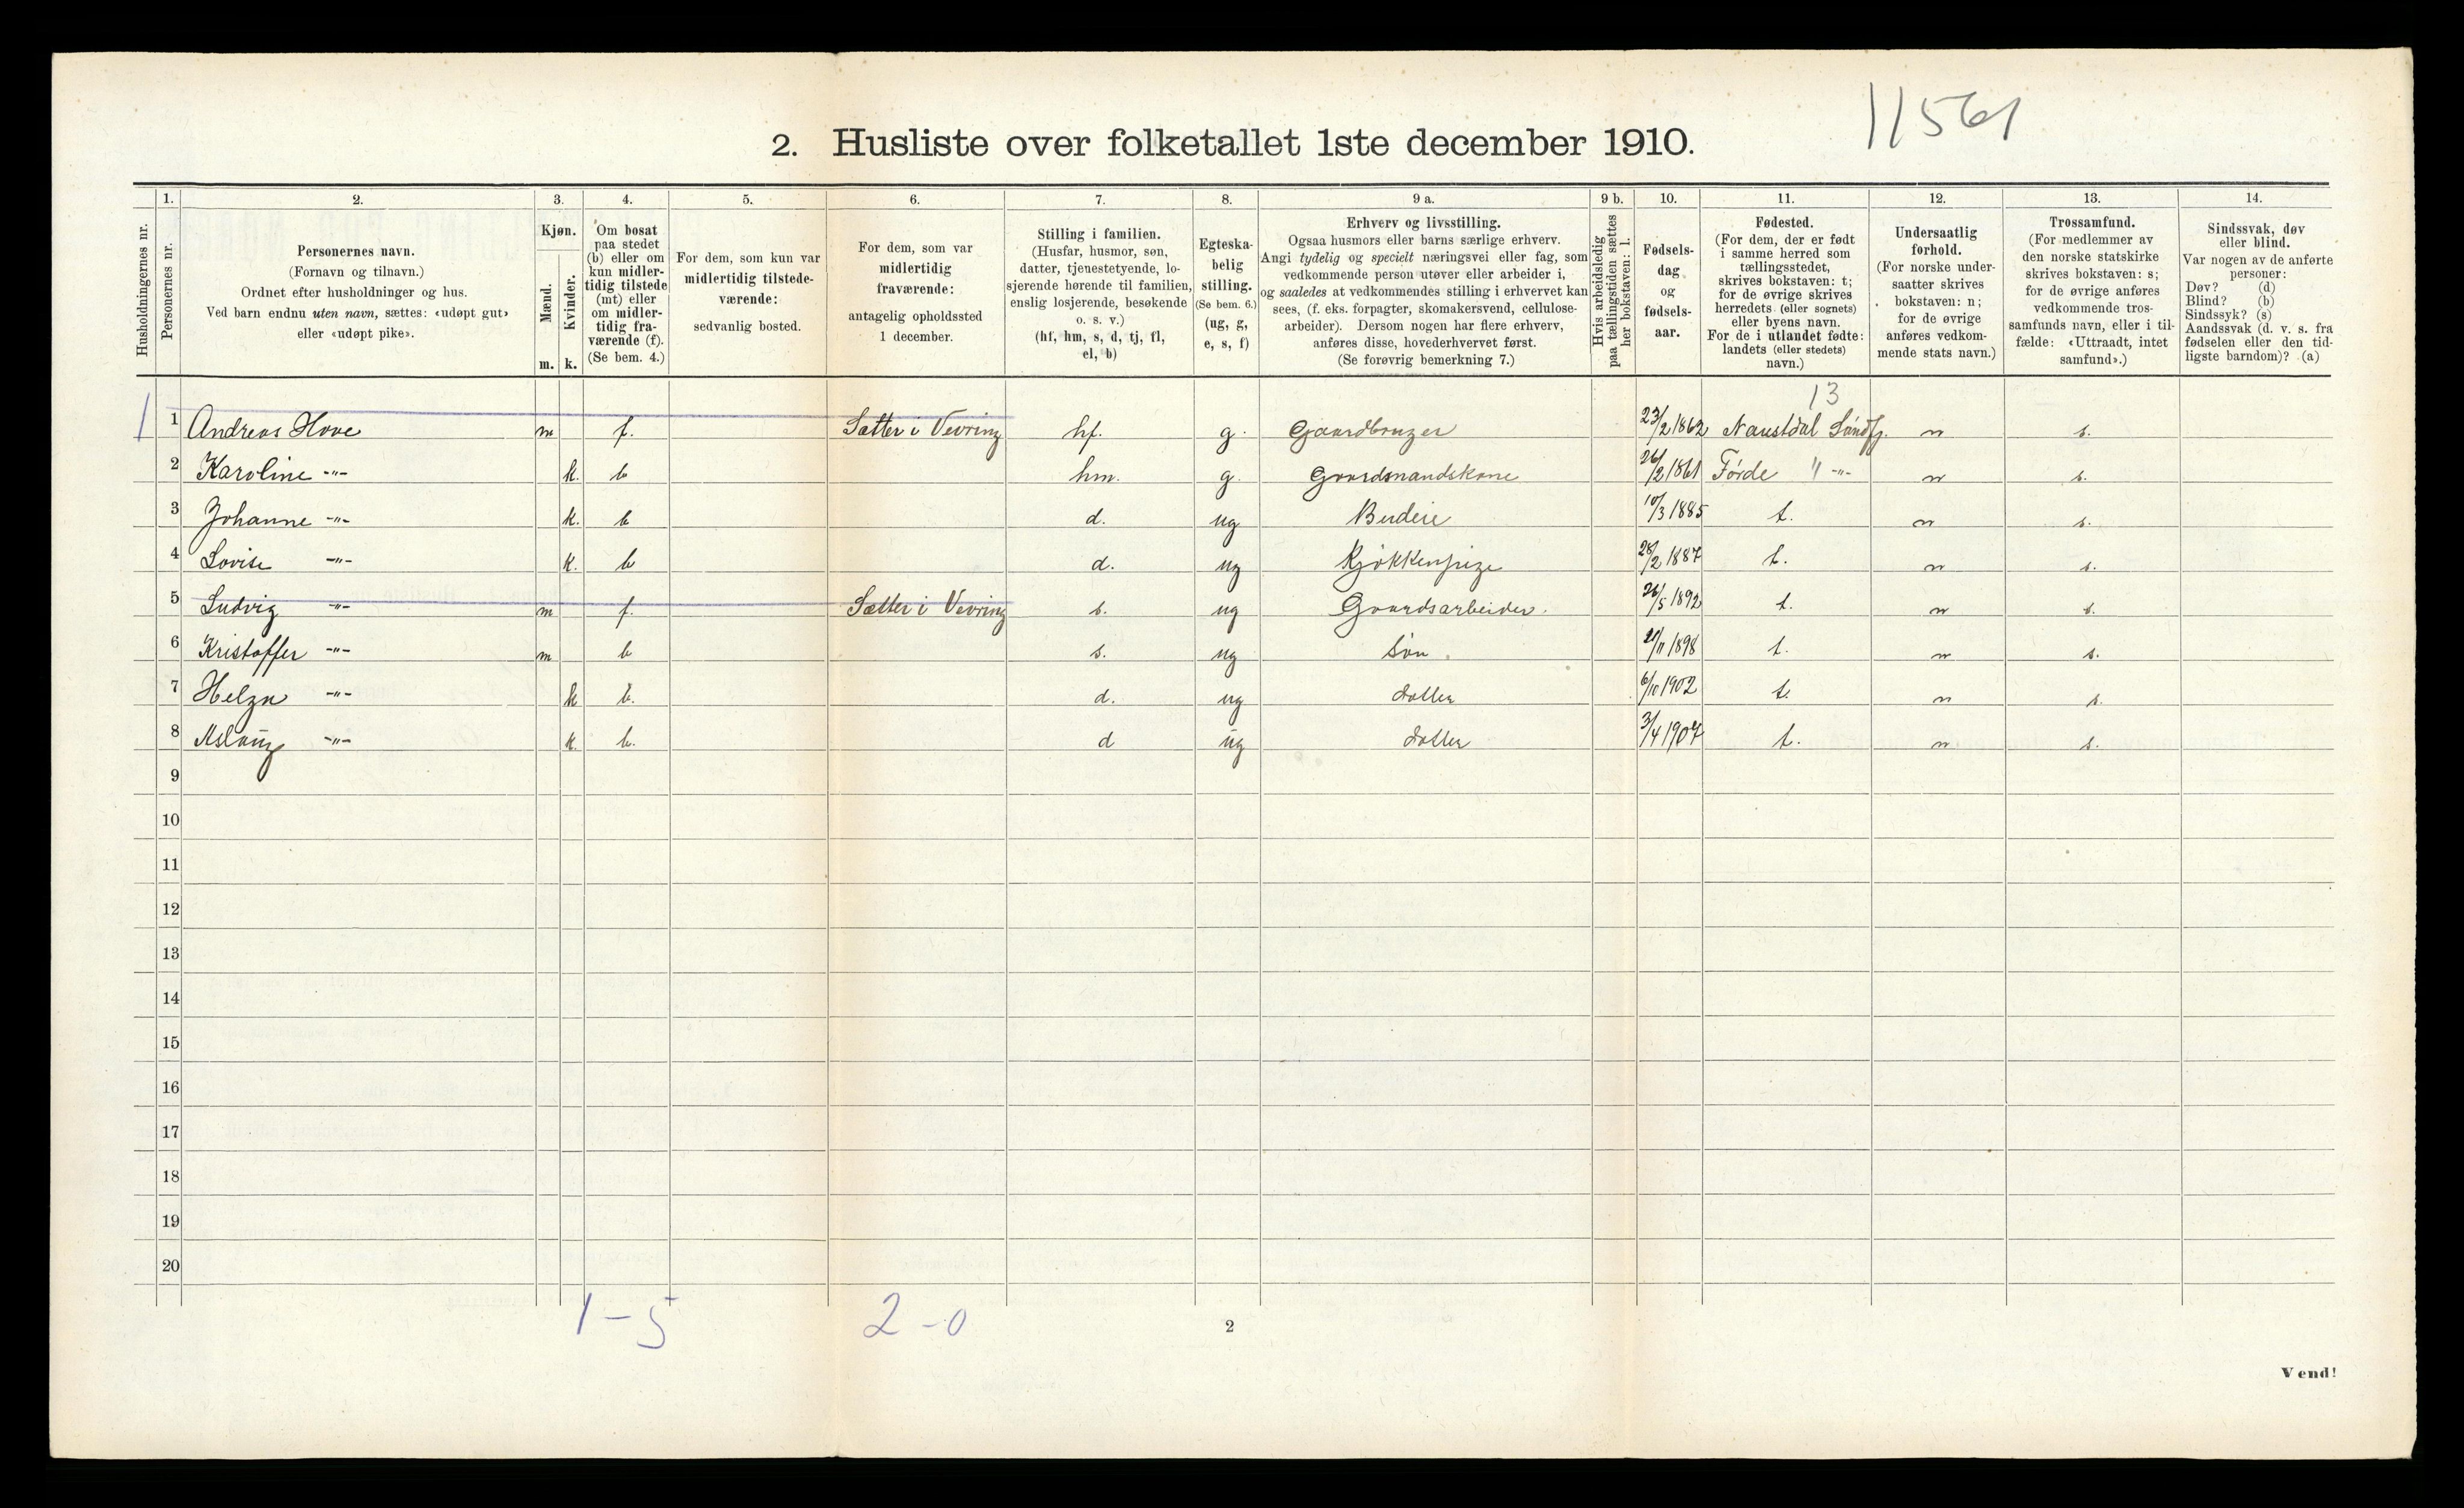 11561
2. Husliste over folketallet 1ste december 1910.
Husholdningernes nr.
1. Personernes nr.
2. Personernes navn.
(Fornavn og tilnavn.)
Ordnet efter husholdninger og hus.
Ved barn endnu uten navn, sættes: «udøpt gut»
eller «udøpt pike».
3. Kjøn.
Mænd. m.
Kvinder. k.
4. Om bosat
paa stedet
(b) eller om
kun midler-
tidig tilstede
(mt) eller
om midler-
tidig fra-
værende (f).
(Se bem. 4.)
5. For dem, som kun var
midlertidig tilstede-
værende:
sedvanlig bosted.
6. For dem, som var
midlertidig
fraværende:
antagelig opholdssted
1 december.
7. Stilling i familien.
(Husfar, husmor, søn,
datter, tjenestetyende, lo-
sjerende hørende til familien,
enslig losjerende, besøkende
o. s. v.)
(hf, hm, s, d, tj, fl,
el, b)
8. Egteska-
belig
stilling.
(Se bem. 6.)
(ug, g,
e, s, f)
9 a. Erhverv og livsstilling.
Ogsaa husmors eller barns særlige erhverv.
Angi tydelig og specielt næringsvei eller fag, som
vedkommende person utøver eller arbeider i,
og saaledes at vedkommendes stilling i erhvervet kan
sees, (f. eks. forpagter, skomakersvend, cellulose-
arbeider). Dersom nogen har flere erhverv,
anføres disse, hovederhvervet først.
(Se forøvrig bemerkning 7.)
9 b. Hvis arbeidsledig
paa tællingstiden sættes
her bokstaven: l.
10. Fødsels-
dag
og
fødsels-
aar.
11. Fødested.
(For dem, der er født
i samme herred som
tællingsstedet,
skrives bokstaven: t;
for de øvrige skrives
herredets (eller sognets)
eller byens navn.
For de i utlandet fødte:
landets (eller stedets)
navn.)
12. Undersaatlig
forhold.
(For norske under-
saatter skrives
bokstaven: n;
for de øvrige
anføres vedkom-
mende stats navn.)
13. Trossamfund.
(For medlemmer av
den norske statskirke
skrives bokstaven: s;
for de øvrige anføres
vedkommende tros-
samfunds navn, eller i til-
fælde: «Uttraadt, intet
samfund».)
14. Sindssvak, døv
eller blind.
Var nogen av de anførte
personer:
Døv? (d)
Blind? (b)
Sindssyk? (s)
Aandssvak (d. v. s. fra
fødselen eller den tid-
ligste barndom)? (a)
13
1 1 Andreas Hove m f. Sætter i Vevring hf. g. Gaardbruger 23/2 1862 Naustdal Søndfj. n s.
2 Karoline -"- k. b hm. g. Gaardmandskone 26/2 1861 Førde " -"- n s.
3 Johanne -"- k. b d. ug Budeie 10/3 1885 t. n s.
4 Lovise -"- k. b d. ug Kjøkkenpige 28/2 1887 t. n s.
5 Ludvig -"- m f. Sætter i Vevring s. ug Gaardsarbeider. 26/5 1892 t. n s.
6 Kristoffer -"- m b s. ug Søn 21/11 1898 t. n s.
7 Helga -"- k b. d. ug datter 6/10 1902 t. n s.
8 Aslaug -"- k. b. d ug datter 3/4 1907 t. n s.
9
10
11
12
13
14
15
16
17
18
19
20
1-5 2-0
2
Vend!